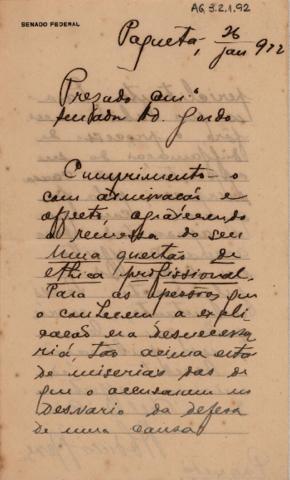 AG.5.2.1.92
SENADO FEDERAL
Paquetá, 26
jan 912
Prezado amº
senador Ad. Gordo
Cumprimento-o
com admiração e
affecto, agradecendo
a remessa do seu
Uma questão de
ethica profissional.
Para as pessoas que
o conhecem a expli
cação era desnecessa
ria, tao acima está
de miserias das de
que o accusaram no
desvario da defesa
de uma causa